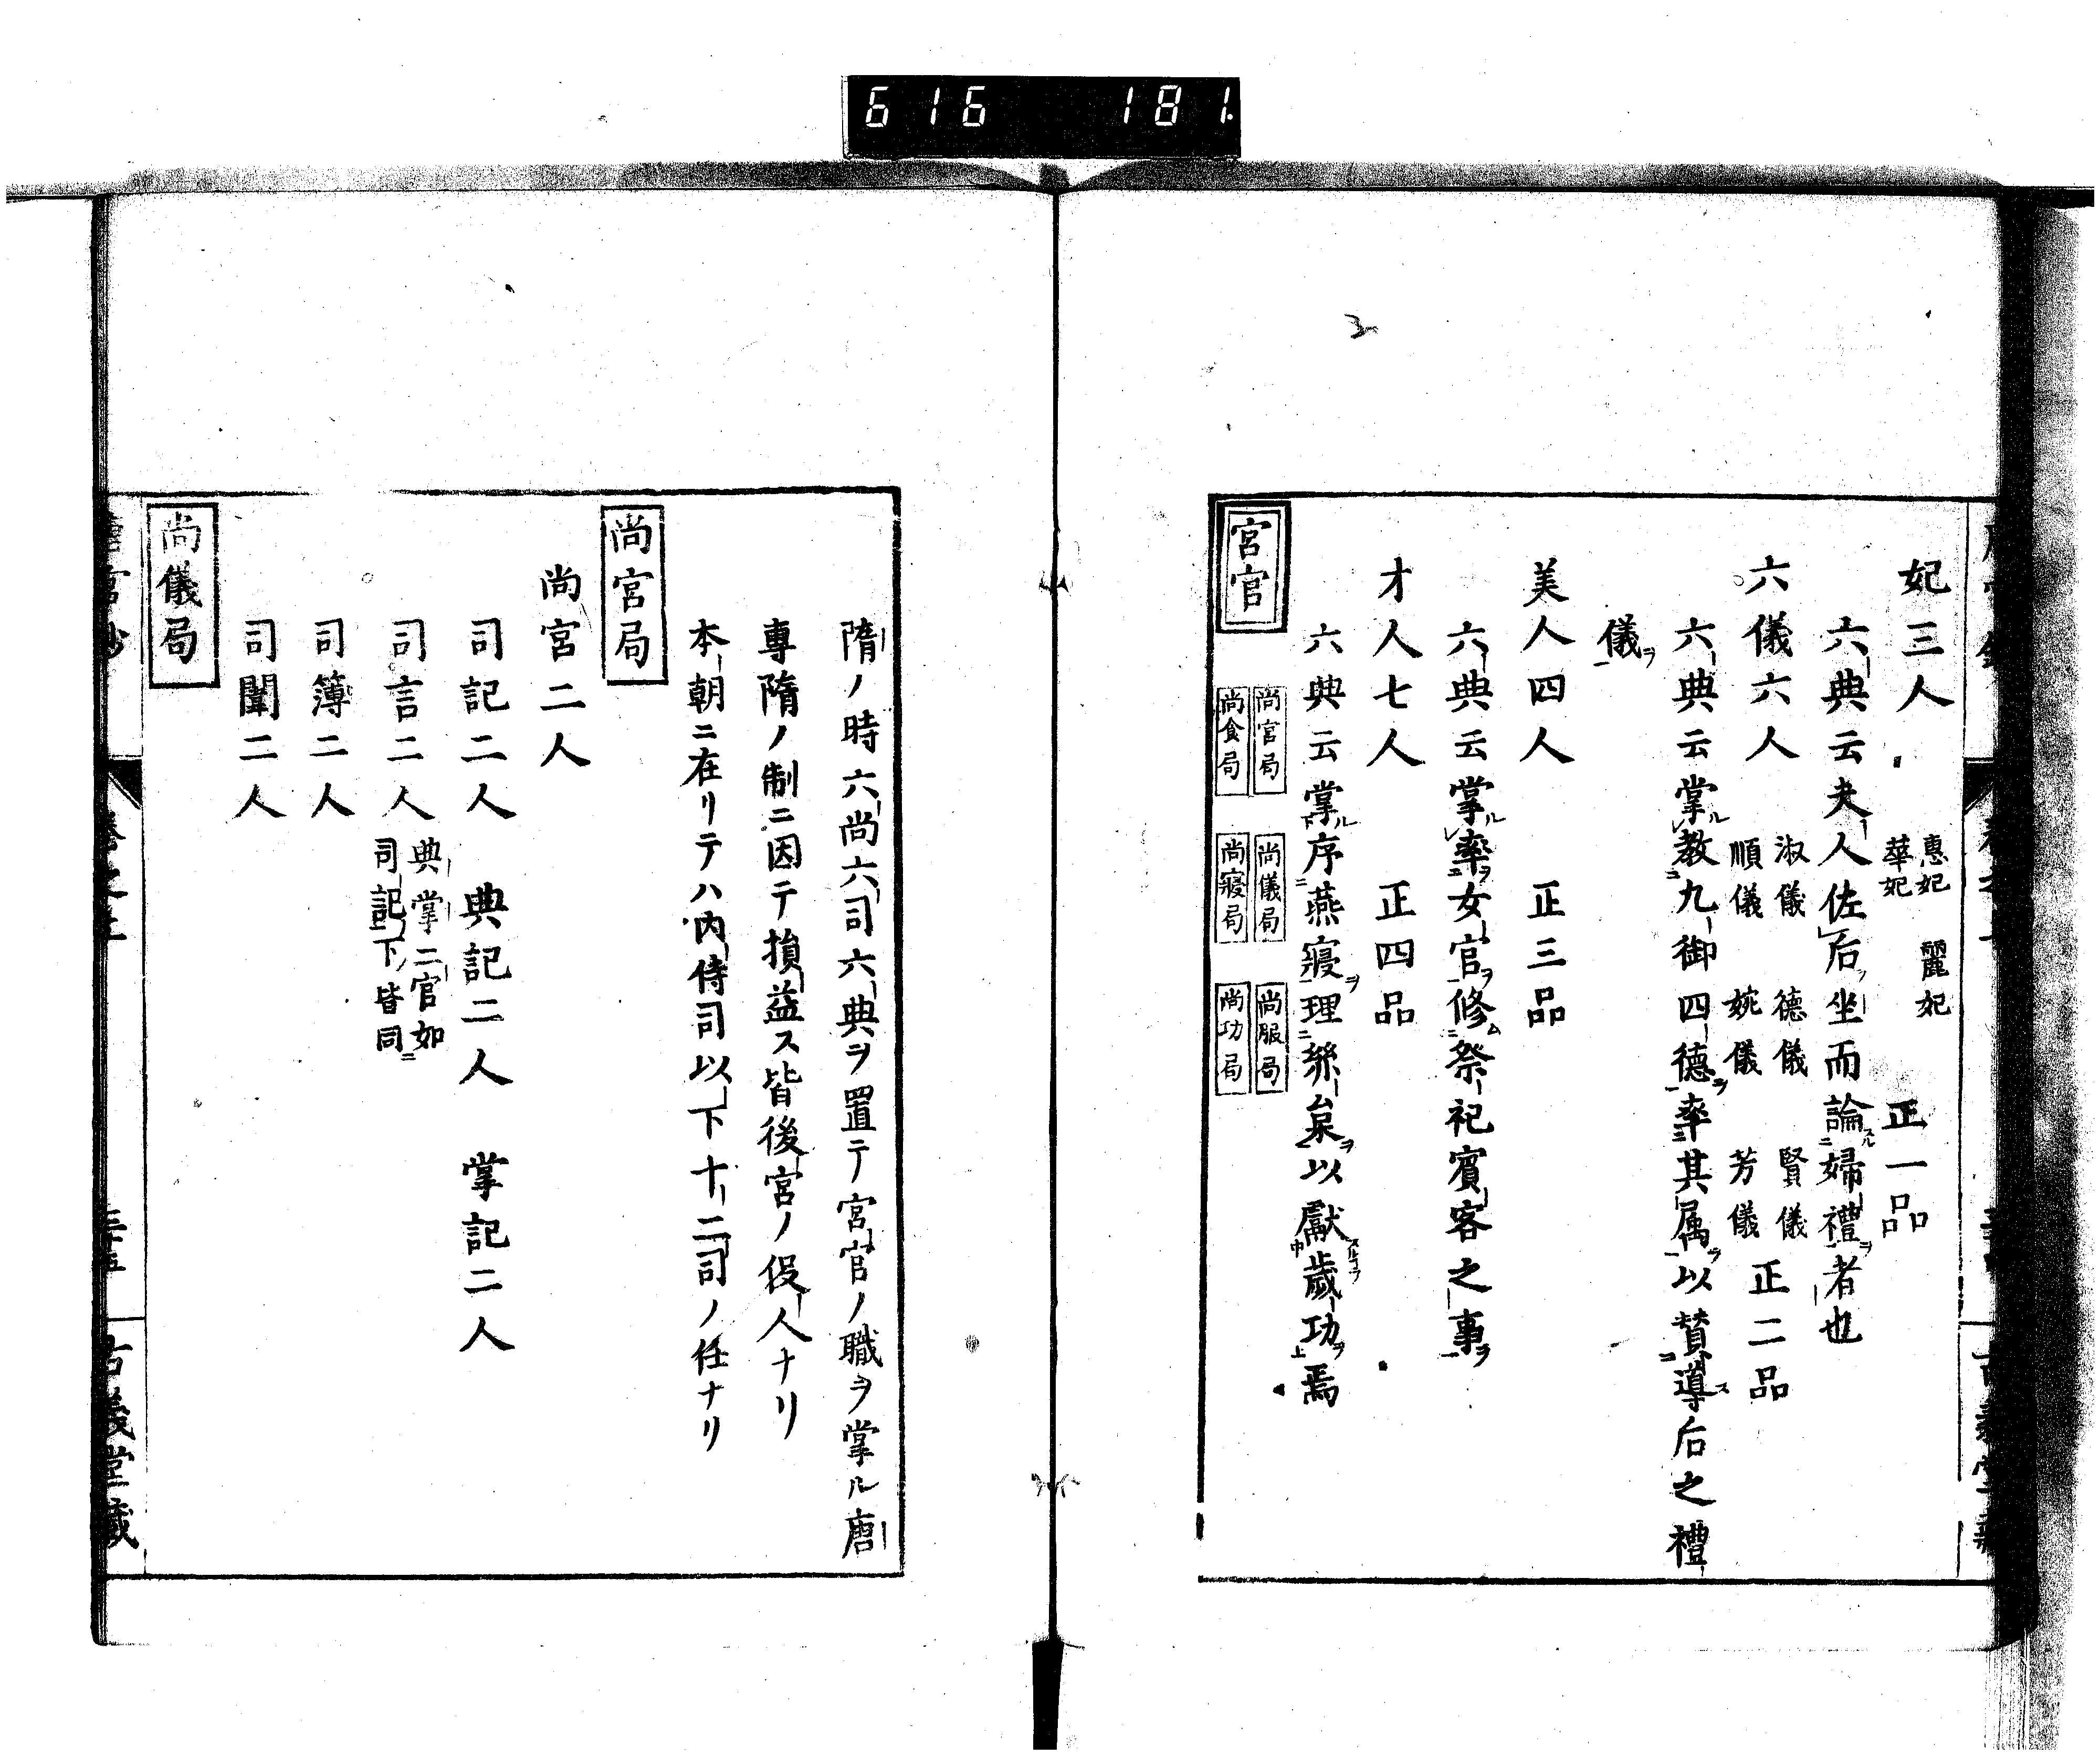 616 181
妃三人 惠妃 麗妃 華妃 正一品
六典云夫人佐后坐而論婦禮者也
六儀六人 淑儀 德儀 賢儀 順儀 婉儀 芳儀 正二品
六典云掌教九御四德率其属以賛導后之禮
儀
美人四人 正三品
六典云掌率女官修祭祀賓客之事
才人七人 正四品
六典云掌序燕寢理絲枲以獻歲功焉
宮官 尚宮局 尚儀局 尚服局 尚食局 尚寢局 尚功局
隋ノ時六尚六司六典ヲ置テ宮官ノ職ヲ掌ル唐
專隋ノ制ニ因テ損益ス皆後宮ノ役人ナリ
本朝ニ在リテハ内侍司以下十二司ノ任ナリ
尚宮局
尚宮二人
司記二人 典記二人 掌記二人
司言二人 典掌二官如司記下皆同
司簿二人
司闈二人
尚儀局
古義堂藏